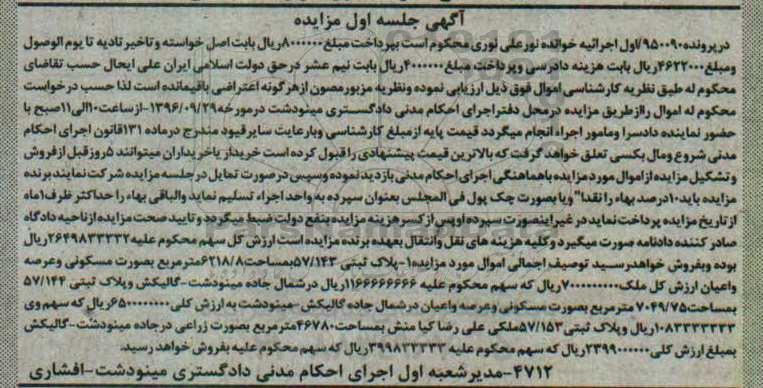 آگهی جلسه اول مزایده
درپرونده ۹۵۰۰۹۰/اول اجرائیه خوانده نورعلی نوری محکوم است بهرداخت مبلغ ۸۰۰۰۰۰۰ریال بابت اصل خواسته وتاخیر تادیه تا یوم الوصول
ومبلغ ۴۶۲۲۰۰۰ریال بابت هزینه دادرسی وپرداخت مبلغ ۴۰۰۰۰۰۰ریال بابت نیم عشر درحق دولت اسلامی ایران علی ایحال حسب تقاضای
محکوم له طبق نظریه کارشناسی اموال فوق ذیل ارزیابی نموده ونظریه مزبور مصون ازهرگونه اعتراضی باقیمانده است لذا حسب درخواست
محکوم له اموال راازطریق مزایده درمحل دفتراجرای احکام مدنی دادگستری مینودشت درمورخه ۱۳۹۶/۰۹/۲۹-ازساعت ۱۰الی ۱۱صبح با
حضور نماینده دادسرا ومامور اجراء انجام میگردد قیمت پایه ازمبلغ کارشناسی وبارعایت سایرقیود مندرج درماده ۱۳۱قانون اجرای احکام
مدنی شروع ومال بکسی تعلق خواهد گرفت که بالاترین قیمت پیشنهادی راقبول کرده است خریدار یاخریداران میتوانند ۵روزقبل ازفروش
وتشکیل مزایده ازاموال مورد مزایده باهماهنگی اجرای احکام مدنی بازدید نموده وسپس درصورت تمایل درجلسه مزایده شرکت نمایند برنده
مزایده باید ۱۰درصد بهاء را نقدا" ویا بصورت چک پول فی المجلس بعنوان سپرده به واحد اجراء تسلیم نماید والباقی بهاء را حداکثر ظرف ۱ماه
ازتاریخ مزایده پرداخت نماید در غیراینصورت سپرده اوپس ازکسرهزینه مزایده بنفع دولت ضبط میگردد وتایید صحت مزایده ازناحیه دادگاه
صادر کننده دادنامه صورت میگیرد وکلیه هزینه های نقل وانتقال بعهده برنده مزایده است ارزش کل سهم محکوم علیه ۲۶۴۹۸۳۳۲۳۲ریال
بوده وبفروش خواهدرسید توصیف اجمالی اموال مورد مزایده ۱-پلاک ثبتی ۵۷/۱۴۳بمساحت ۶۲۱۸/۸مترمربع بصورت مسکونی وعرصه
واعیان ارزش کل ملک ۷۰۰۰۰۰۰۰۰۰ریال که سهم محکوم علیه ۱۱۶۶۶۶۶۶۶۶ریال درشمال جاده مینودشت-گالیکش وپلاک ثبتی ۵۷/۱۴۴
بمساحت ۷۰۴۹/۷۵مترمربع بصورت مسکونی وعرصه واعیان درشمال جاده گالیکش-مینودشت به ارزش کلی ۶۵۰۰۰۰۰۰۰۰ریال که سهم وی
۱۰۸۳۳۳۳۳۳۳ریال وپلاک ثبتی ۵۷/۱۵۳ملکی علی رضا کیا منش بمساحت ۴۶۷۸۰مترمربع بصورت زراعی درجاده مینودشت-گالیکش
بمبلغ ارزش کلی ۲۳۹۹۰۰۰۰۰۰ریال که سهم محکوم علیه ۳۹۹۸۳۳۳۳۳ریال که سهم محکوم علیه بفروش خواهد رسید.
۴۷۱۲-مدیرشعبه اول اجرای احکام مدنی دادگستری مینودشت-افشاری